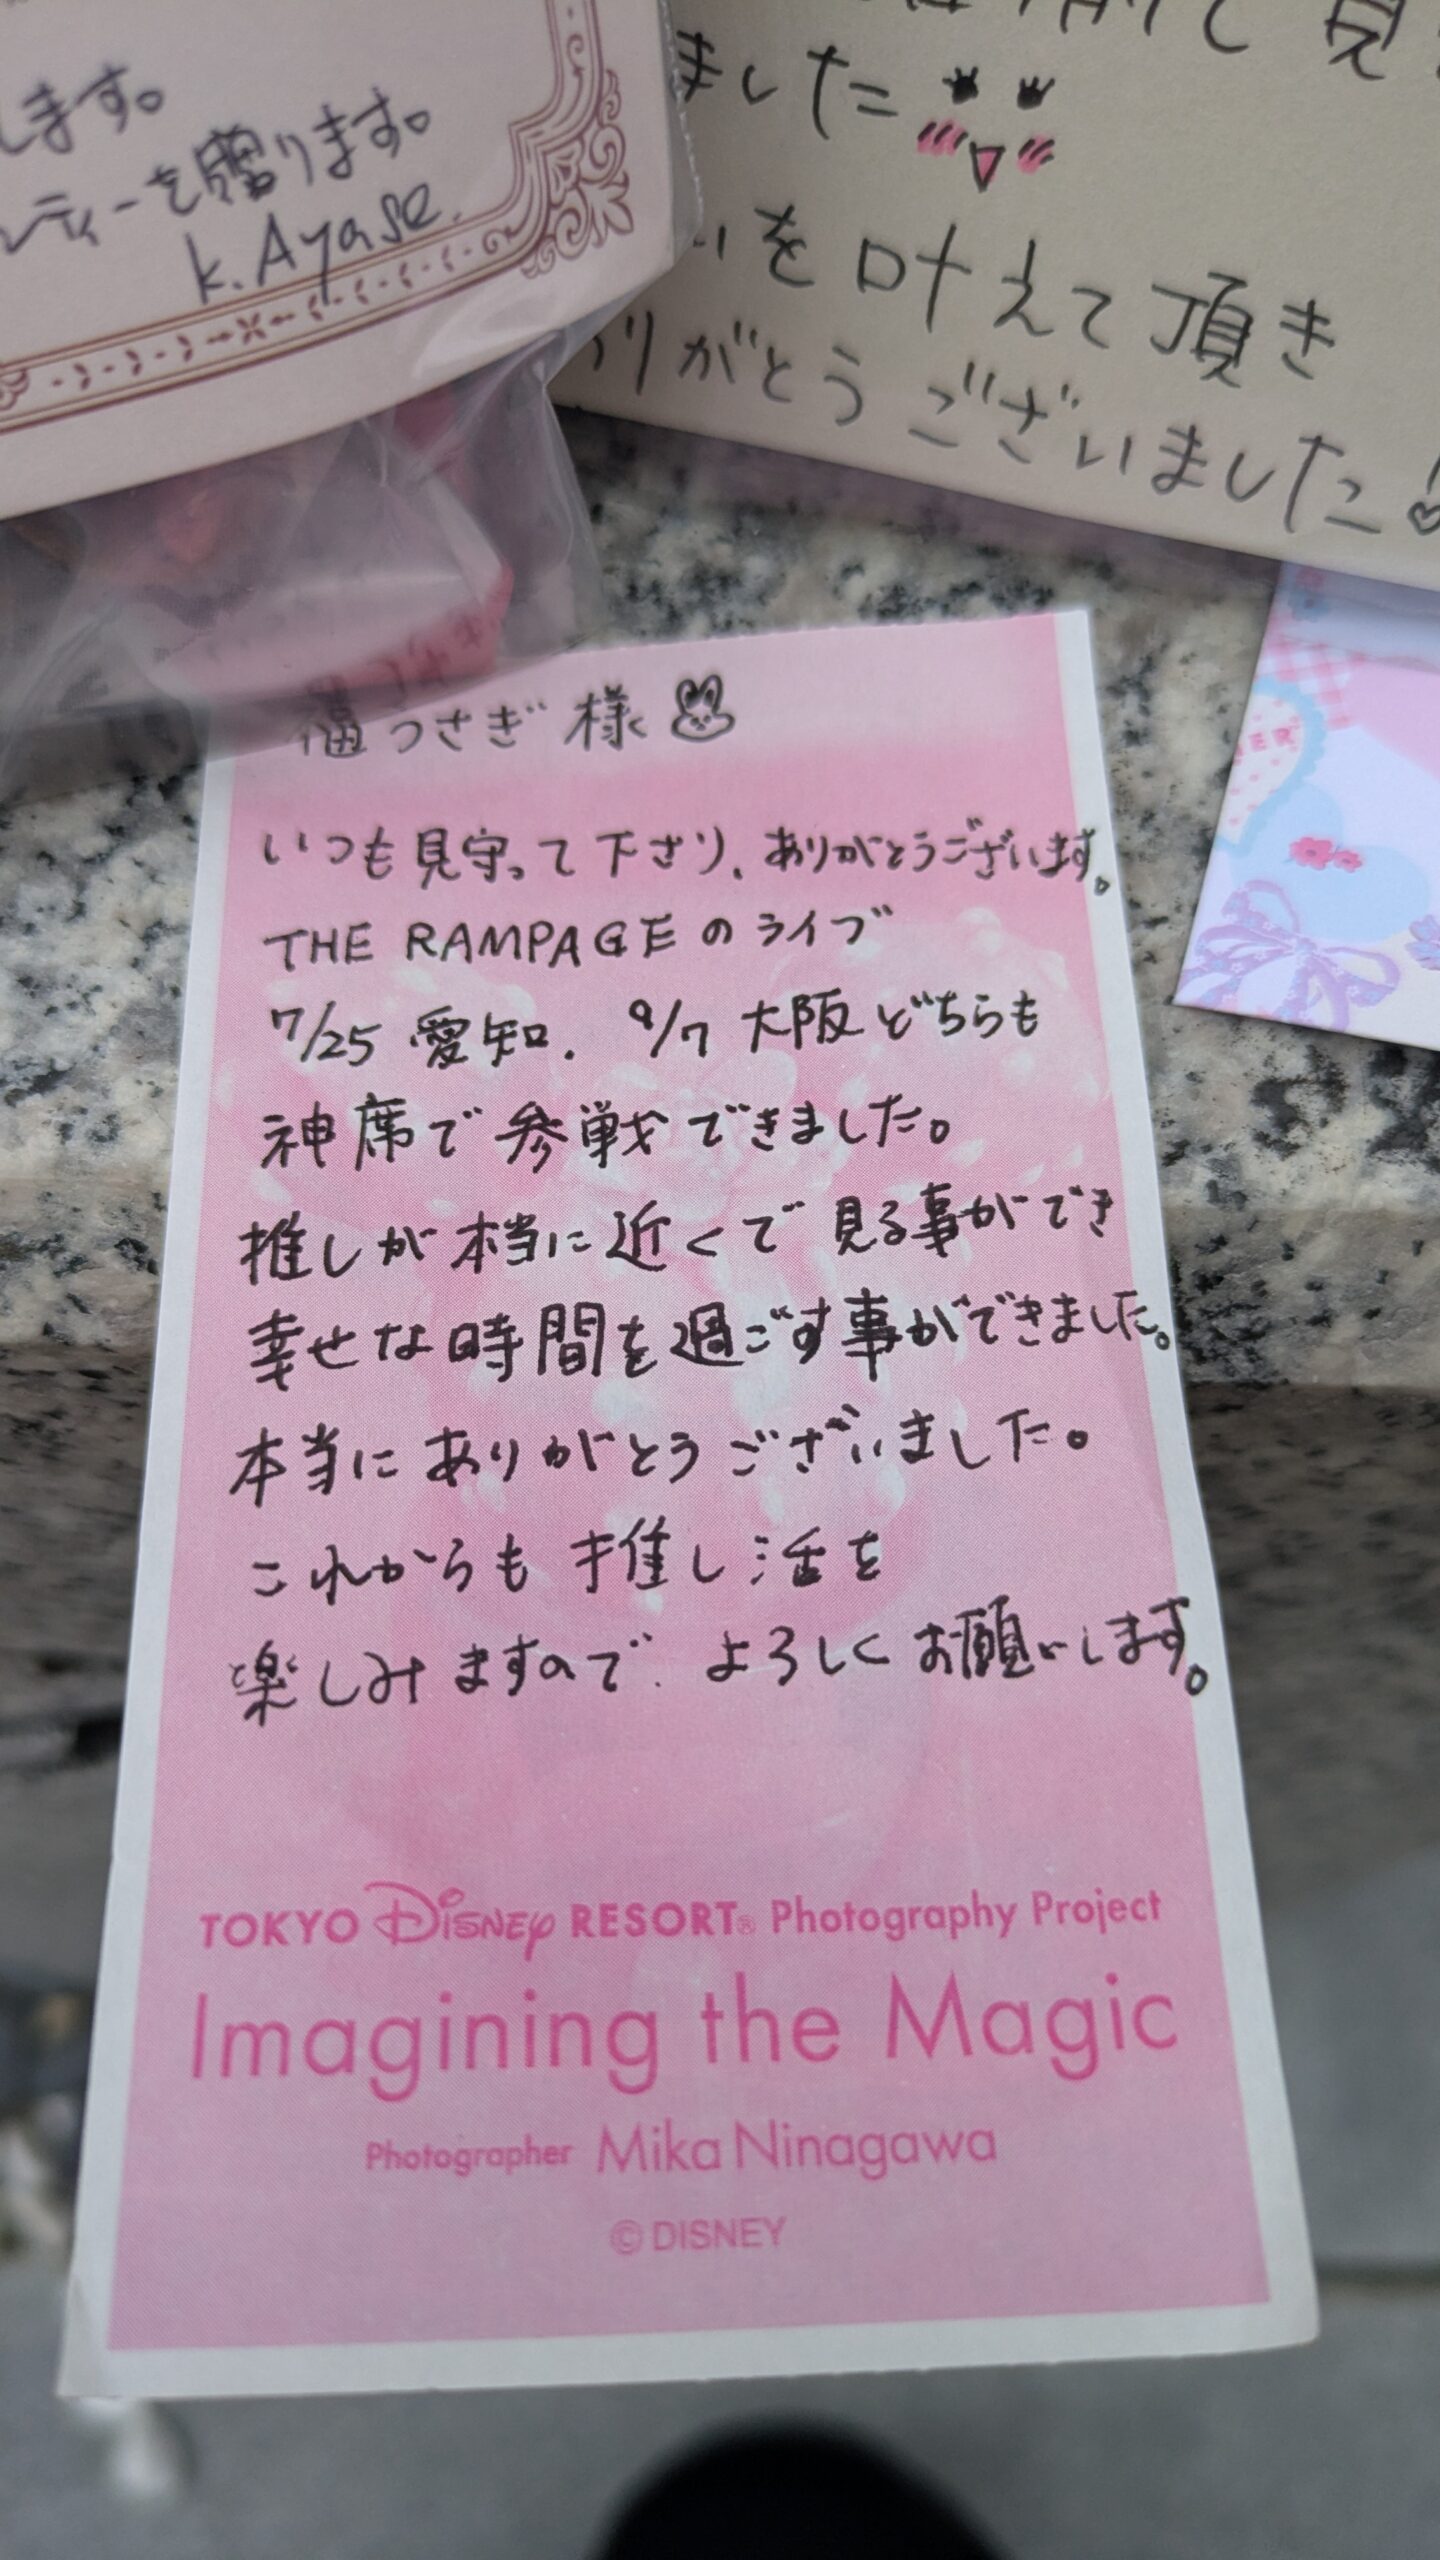 します。
ティーを贈ります。
K.Ayase.
ました
を叶えて頂き
がとうございました
福うさぎ様
いつも見守って下さり、ありがとうございます。
THE RAMPAGEのライブ
7/25 愛知、9/7 大阪どちらも
神席で参戦できました。
推しが本当に近くで見る事ができ
幸せな時間を過ごす事ができました。
本当にありがとうございました。
これからも推し活を
楽しみますので、よろしくお願いします。
TOKYO Disney RESORT® Photography Project
Imagining the Magic
Photographer Mika Ninagawa
© DISNEY